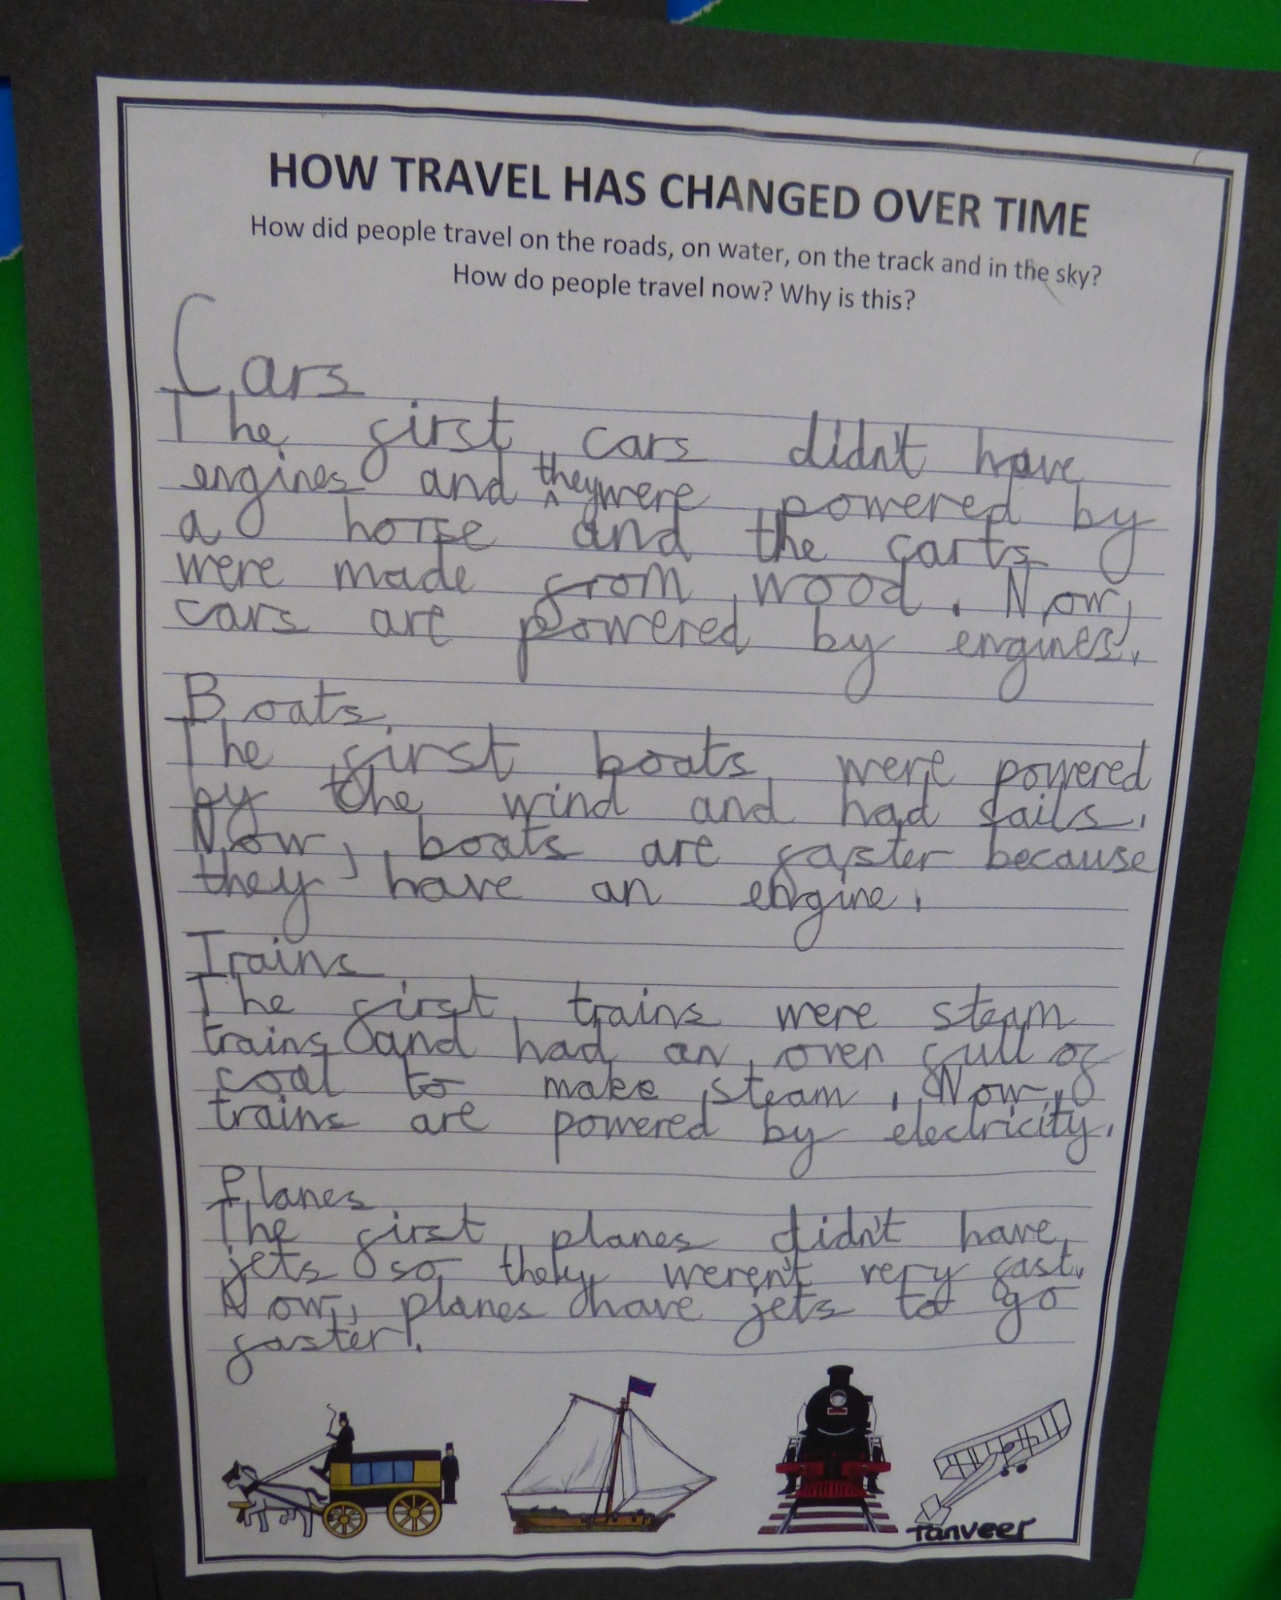 HOW TRAVEL HAS CHANGED OVER TIME
How did people travel on the roads, on water, on the track and in the sky?
How do people travel now? Why is this?
Cars
The first cars didn't have
engines and they were powered by
a horse and the carts
were made from wood. Now,
cars are powered by engines.
Boats
The first boats were powered
by the wind and had sails.
Now, boats are faster because
they have an engine.
Trains
The first trains were steam
trains and had an oven full of
coal to make steam. Now,
trains are powered by electricity.
Planes
The first planes didn't have
jets so they weren't very fast.
Now, planes have jets to go
faster.
Tanveer